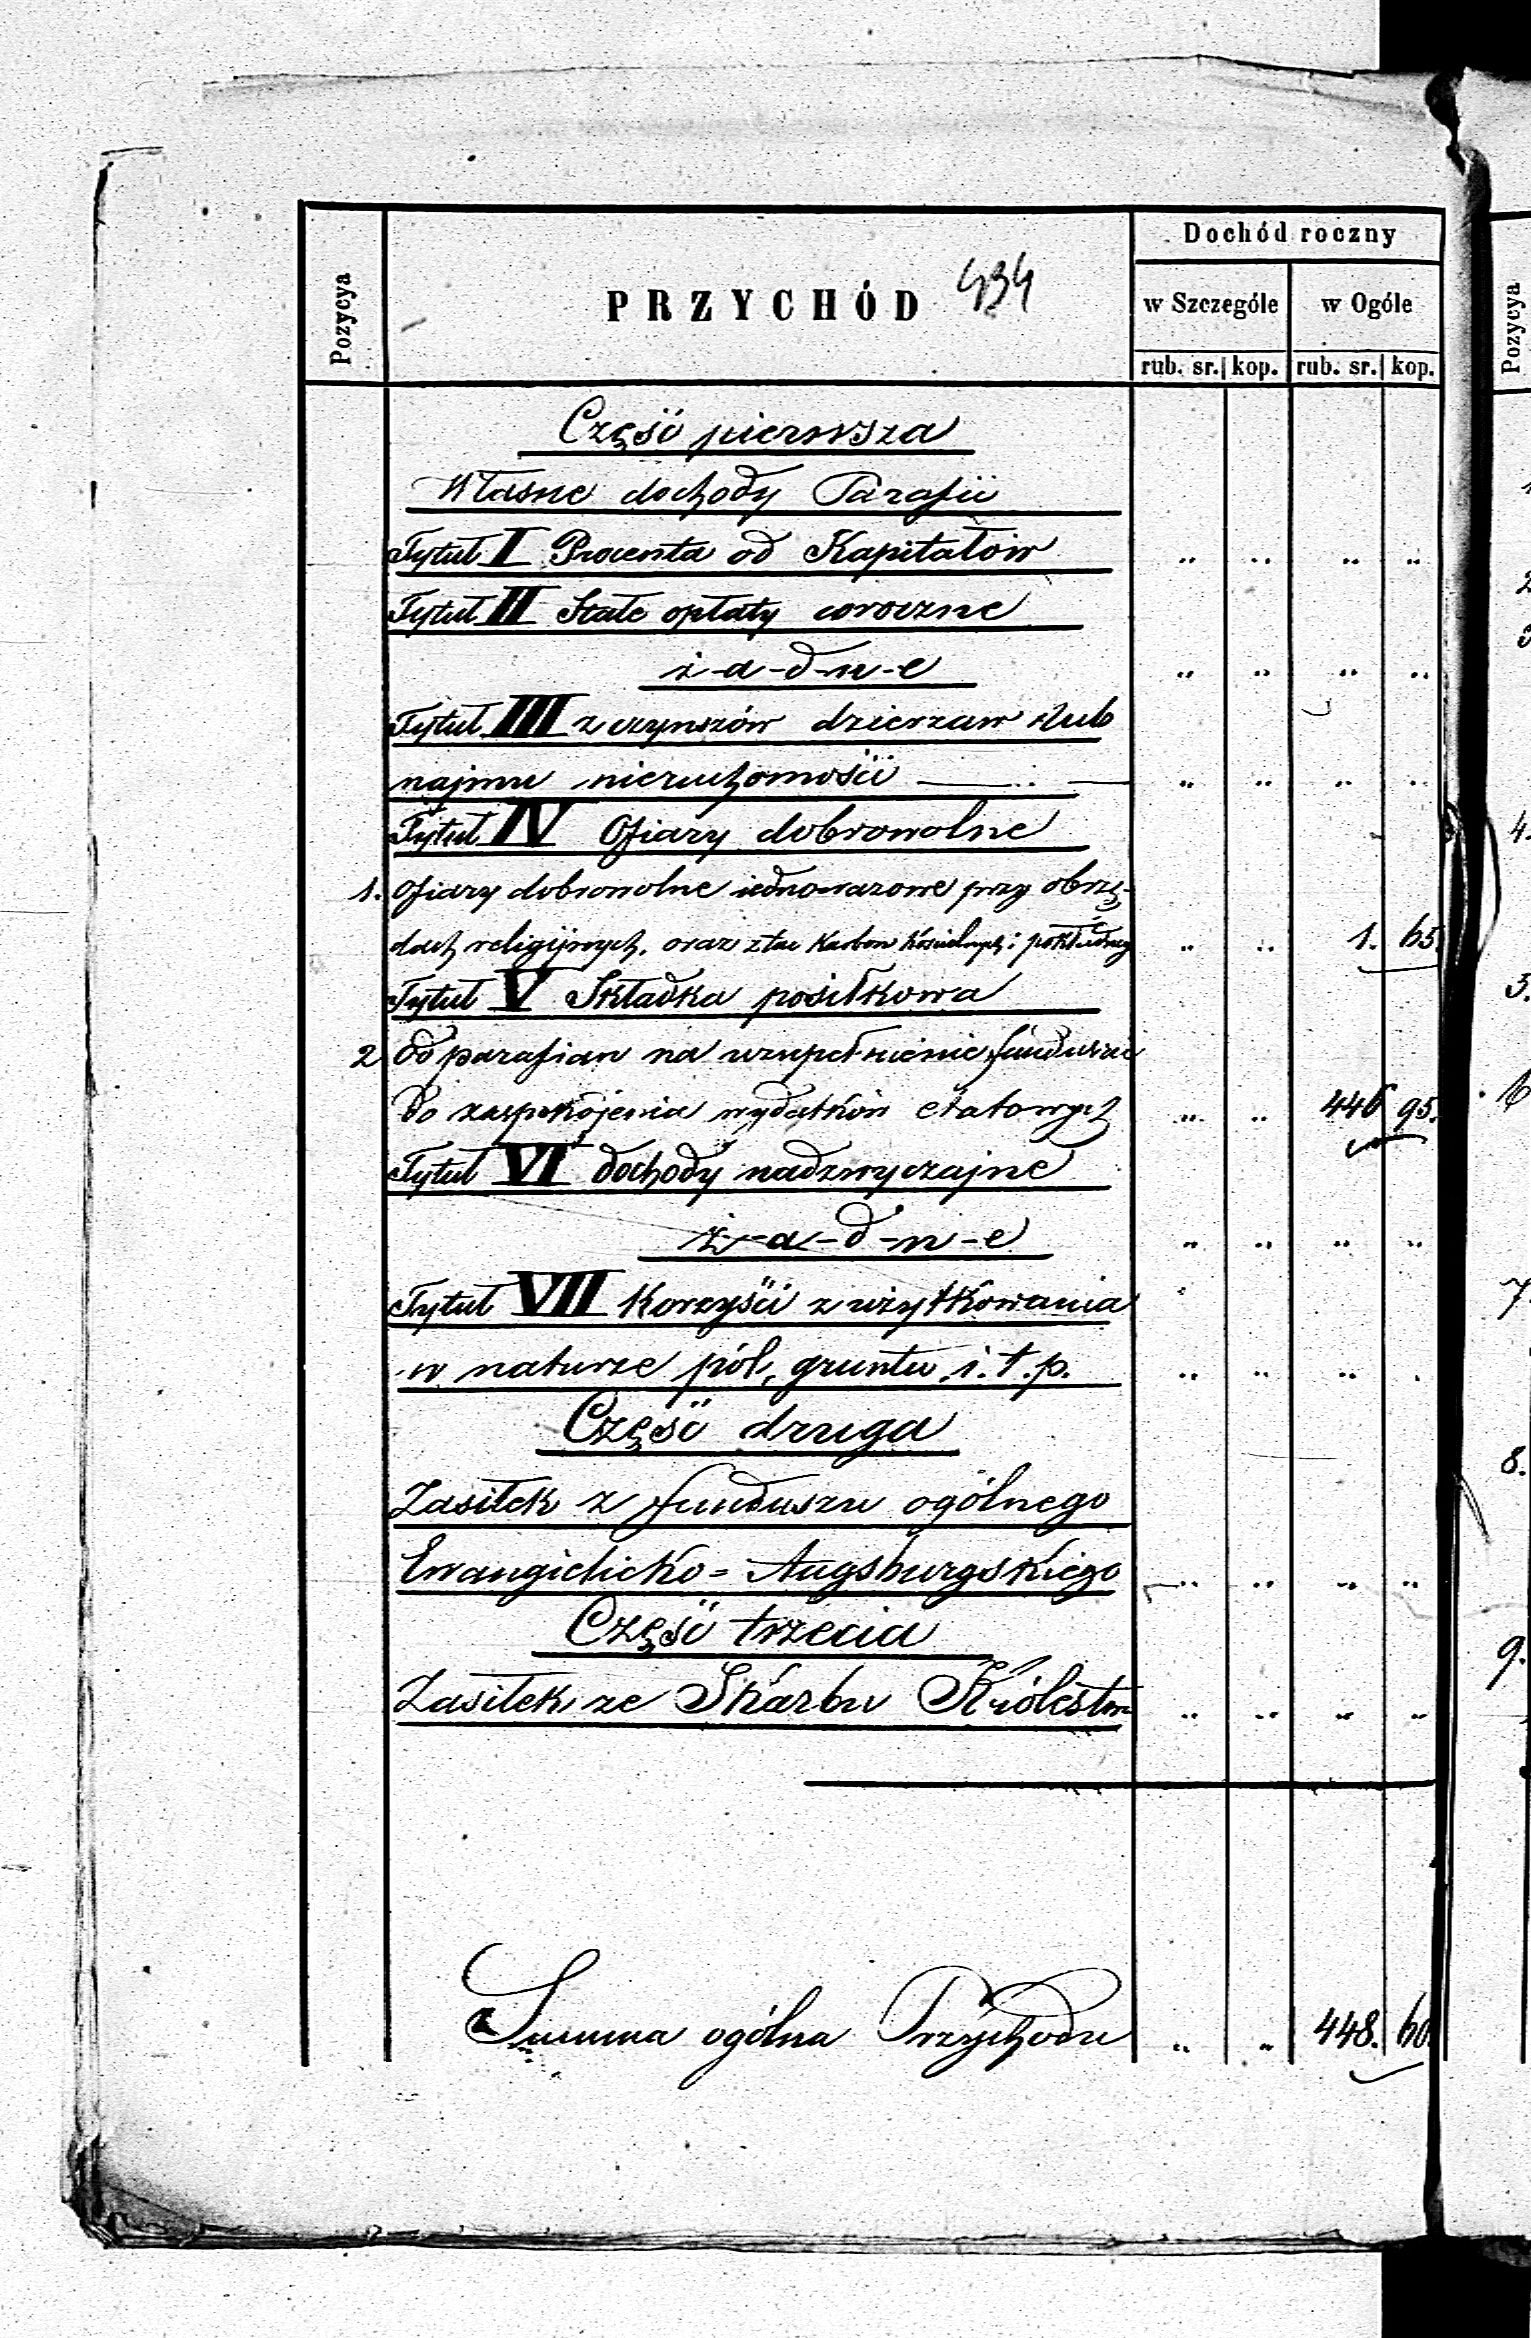 Pozycya
PRZYCHÓD 434
Dochód roczny
w Szczególe w Ogóle
rub. sr. kop. rub. sr. kop.
Część pierwsza
Własne dochody Parafii
Tytuł I Procenta od Kapitałów " " " "
Tytuł II Stałe opłaty coroczne
ż-a-d-n-e " " " "
Tytuł III z czynszów dzierzaw lub
najmu nieruchomości " " " "
Tytuł IV Ofiary dobrowolne
1. Ofiary dobrowolne iednorazowe przy obrzę-
dach religijnych, oraz z karbon Kościelnych i " " 1. 65.
Tytuł V Składka posiłkowa
2 Od parafian na uzupełnienie funduszu
do zaspokojenia wydatków etatowych " " 446 95.
Tytuł VI dochody nadzwyczajne
ż-a-d-n-e " " " "
Tytuł VII Korzyści z użytkowania
w naturze pól, gruntu i.t.p. " " " "
Część druga
Zasiłek z funduszu ogólnego
Ewangielicko=Augsburgskiego " " " "
Część trzecia
Zasiłek ze Skarbu Królestwa " " " "
Summa ogólna Przychodu " " 448. 60.
Pozycya
2
3
4.
5.
6
7.
8.
9.